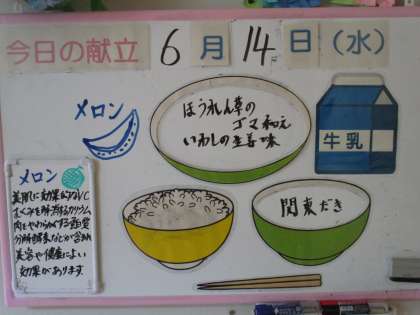 今日の献立 6月14日(水)
メロン
ほうれん草の
ゴマ和え
いわしの生姜味
牛乳
関東だき
メロン
美肌に効果があるVC
むくみを解消するカリウム
肉をやわらかくする蛋白質
分解酵素などが含まれ
美容や健康によい
効果があります